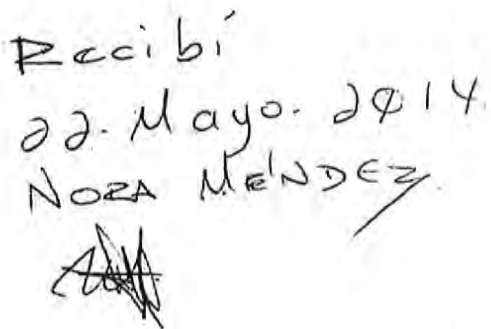 Recibí
22. Mayo. 2014.
NORA MÉNDEZ